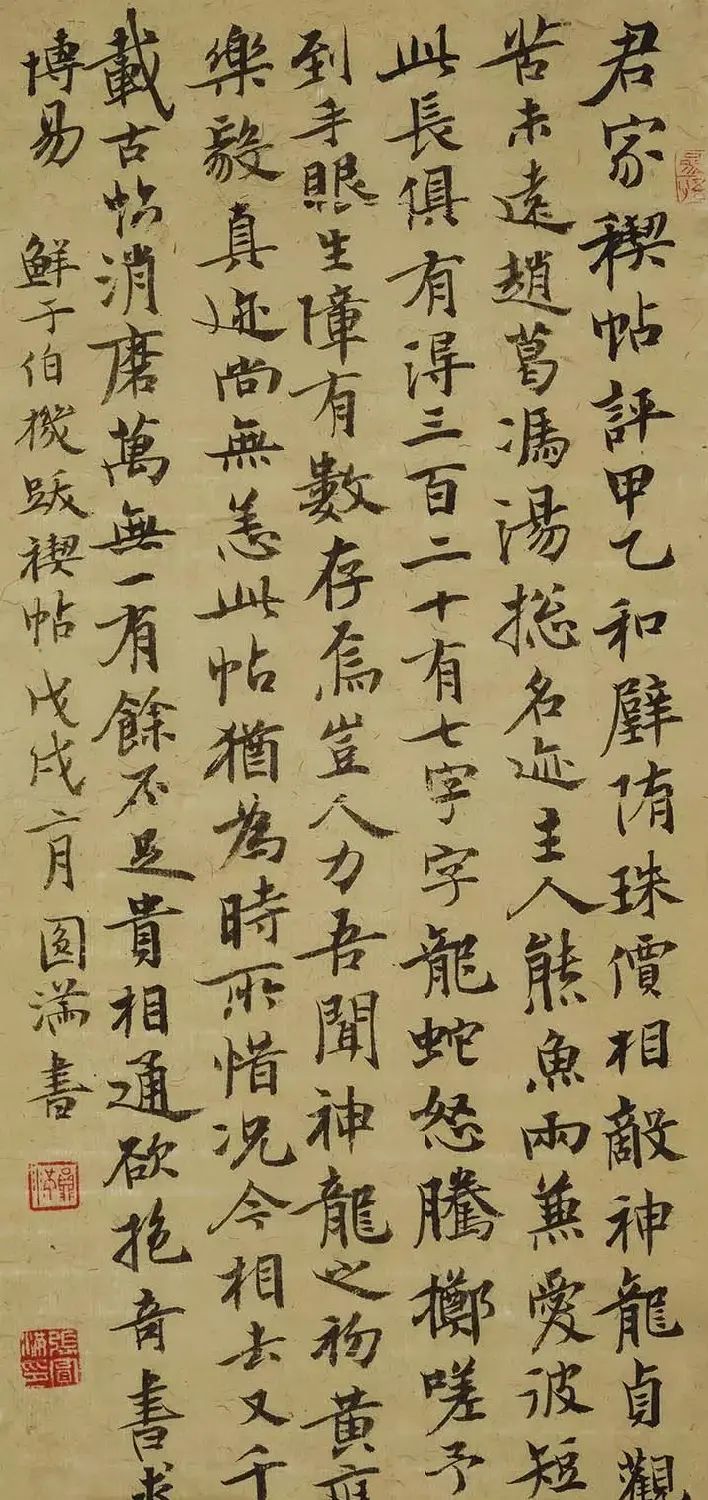 君家禊帖評甲乙和璧隋珠價相敵神龍貞觀
苦未遠趙葛馮湯揔名迹主人熊魚兩兼愛波短
此長俱有得三百二十有七字字龍蛇怒騰擲嗟予
到手眼生障有數存焉豈人力吾聞神龍之初黃庭
樂毅真迹尚無恙此帖猶為時所惜況今相去又千
載古帖消磨萬無一有餘不足貴相通欲抱奇書求
博易 鮮于伯機跋禊帖戊戌六月 圓滿書
張圓滿印